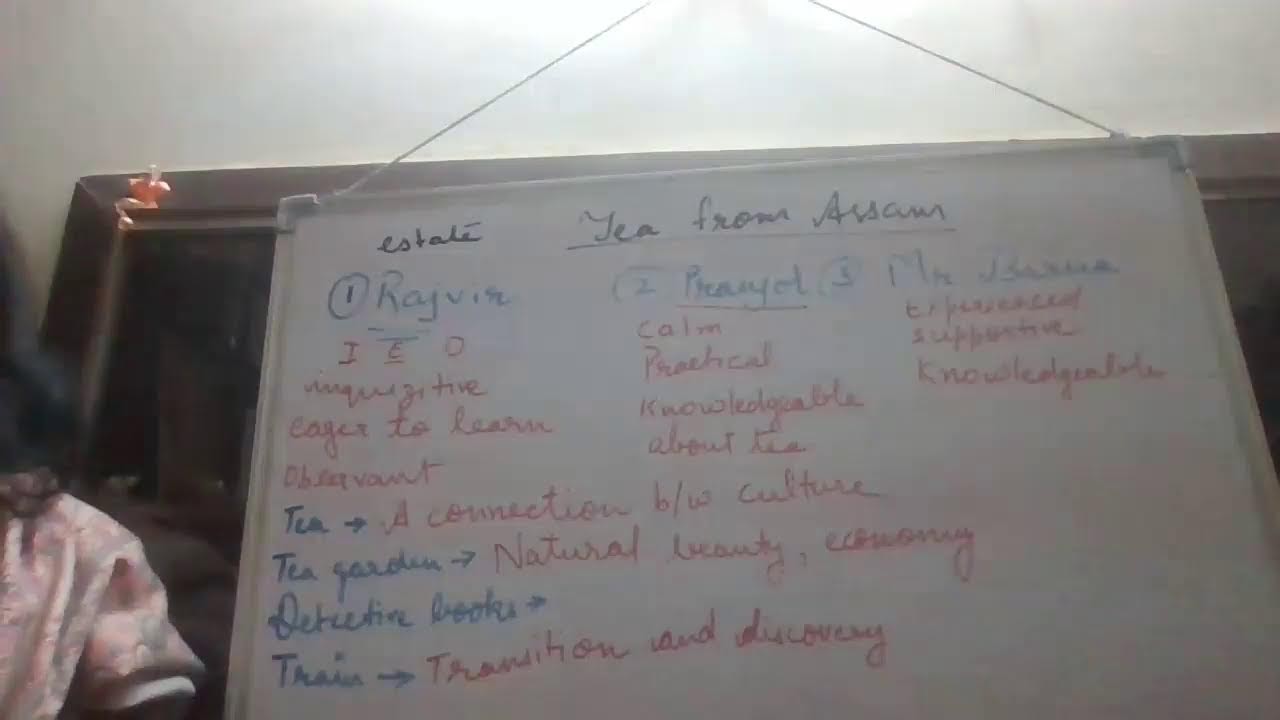 estate Tea from Assam
① Rajvir (2 Pranjol ③ Mr Barua
I E O
calm
Experienced
supportive
inquizitive
Practical
Knowledgeable
eager to learn
Knowledgeable
about tea
Observant
Tea → A connection b/w culture
Tea garden → Natural beauty, economy
Detective books →
Train → Transition and discovery